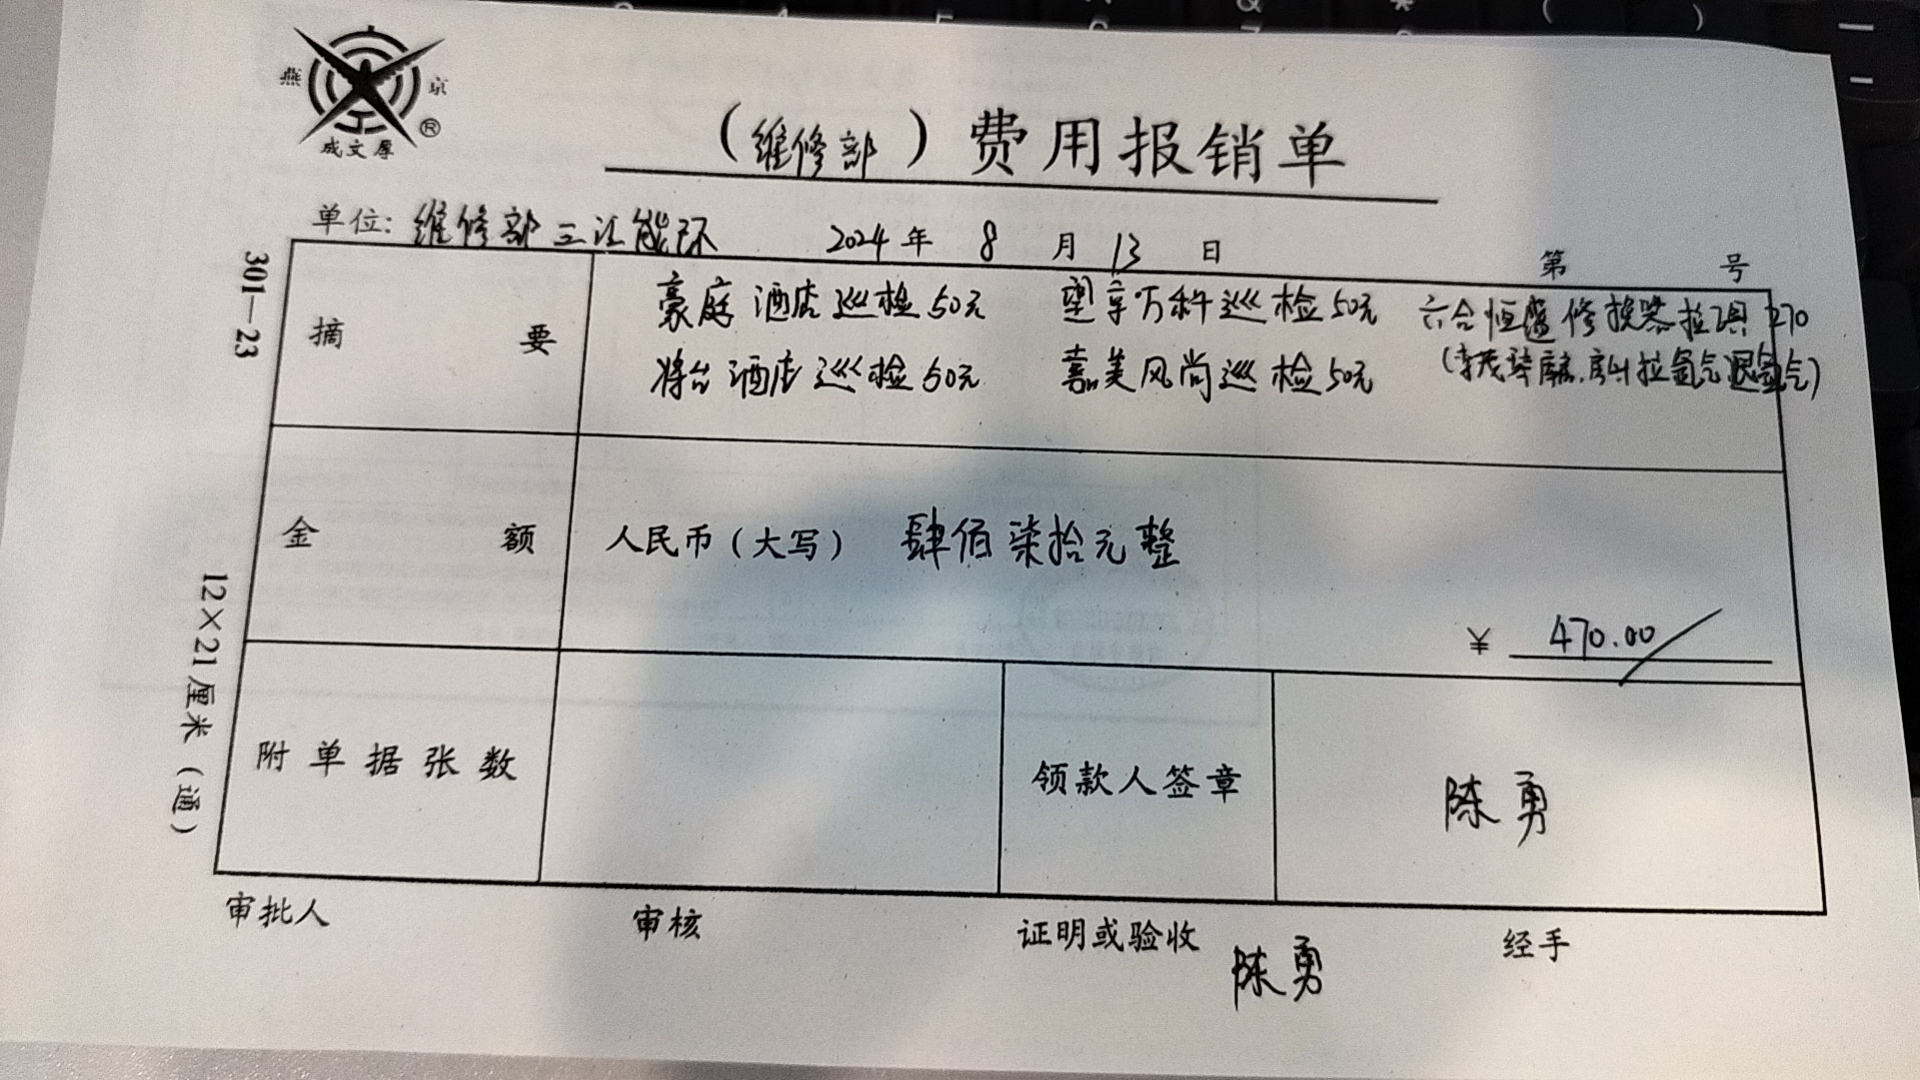 燕 京
®
成文厚
(维修部)费用报销单
单位: 维修部三江能环 2024年 8月 13日 第 号
301—23
12×21厘米(通)
摘 要
豪庭酒店巡检50元 望京万科巡检50元 六合恒隆修换器拉工具 270
将台酒店巡检50元 嘉美风尚巡检50元
金 额 人民币(大写) 肆佰柒拾元整
¥ 470.00
附单据张数 领款人签章 陈勇
审批人 审核 证明或验收 陈勇 经手